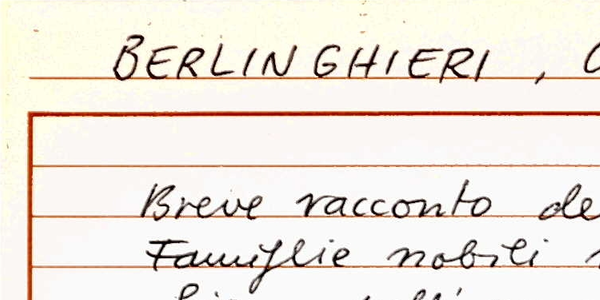 BERLINGHIERI,
Breve racconto de
Famiglie nobili